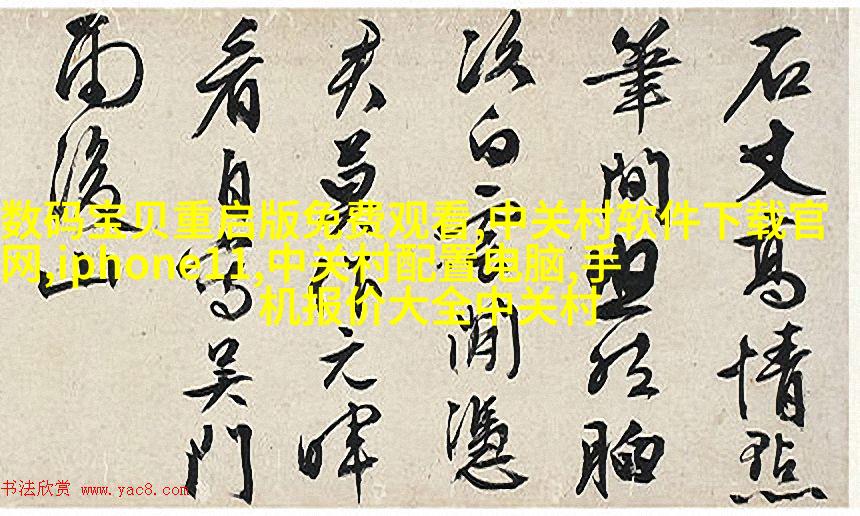 石丈高情點
筆間胸
次白雲閒憑
君莫作元暉
看自寫吳門
雨後山
数码宝贝重启版免费观看,中关村软件下载官
网,iphone11,中关村配置电脑,手
机报价大全中关村
书法欣赏 www.yac8.com